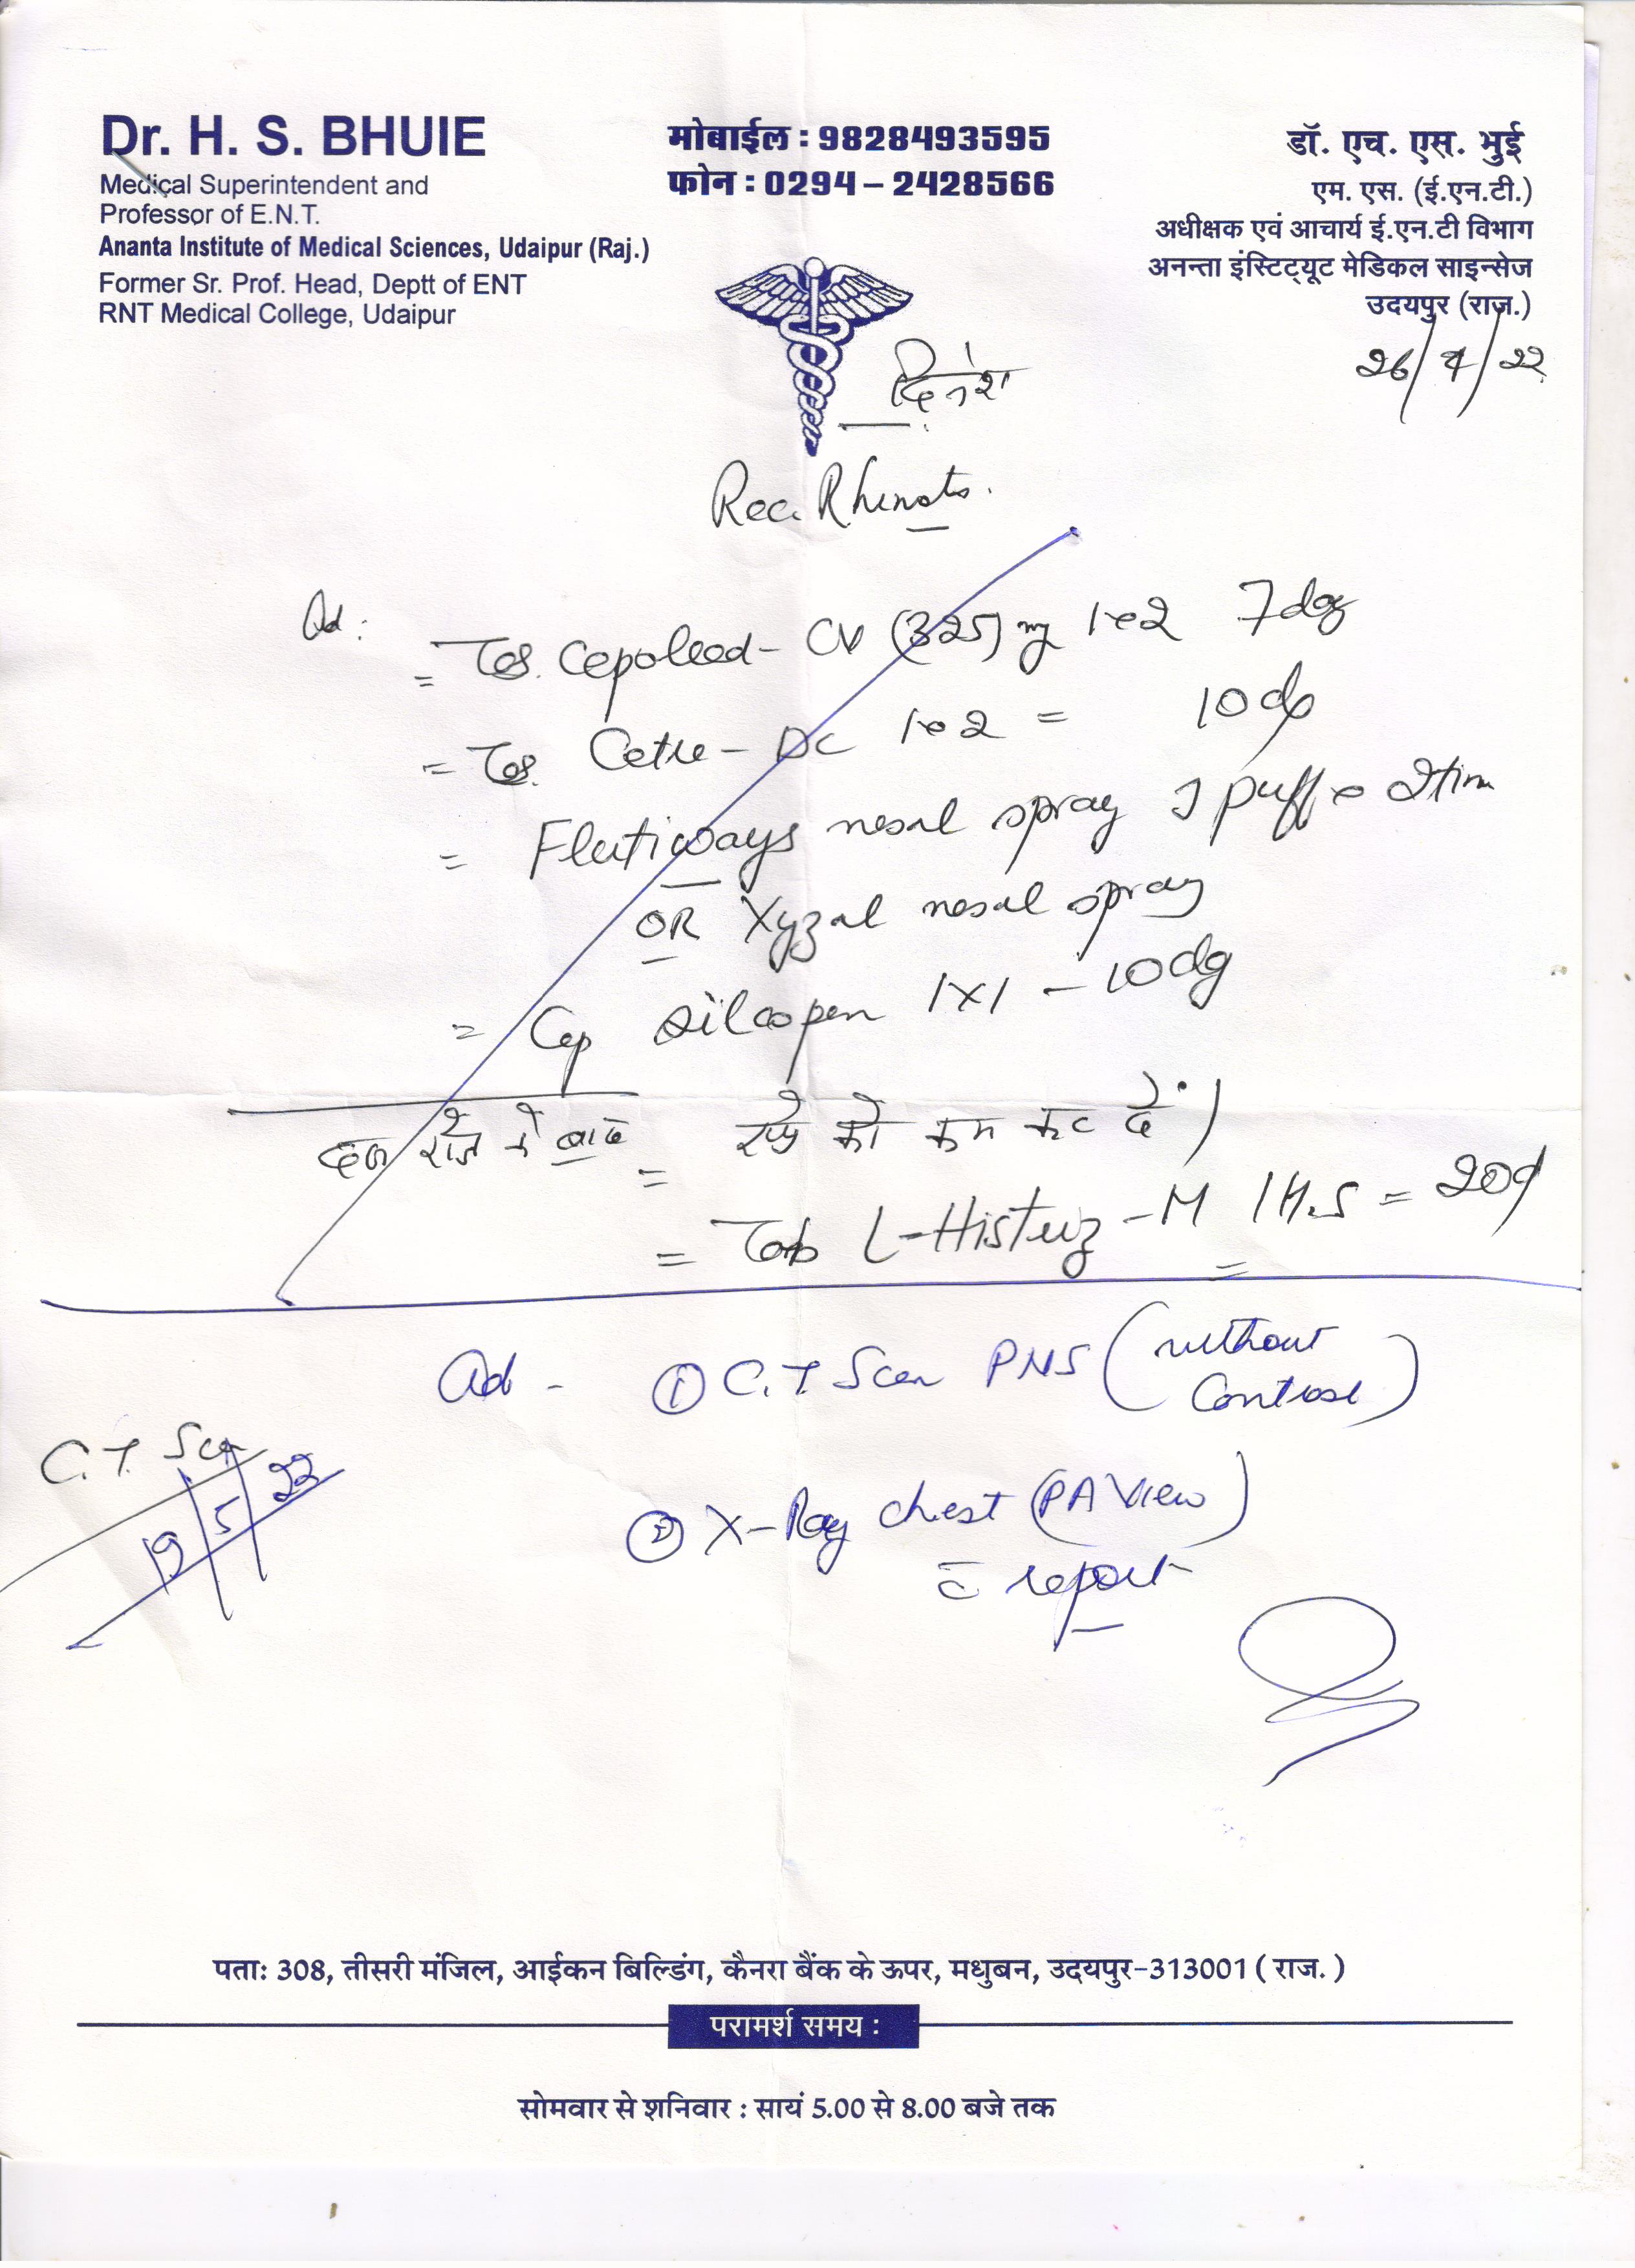 Dr. H. S. BHUIE
Medical Superintendent and
Professor of E.N.T.
Ananta Institute of Medical Sciences, Udaipur (Raj.)
Former Sr. Prof. Head, Deptt of ENT
RNT Medical College, Udaipur
मोबाईल : 9828493595
फोन : 0294 – 2428566
डॉ. एच. एस. भुई
एम. एस. (ई.एन.टी.)
अधीक्षक एवं आचार्य ई.एन.टी विभाग
अनन्ता इंस्टिट्यूट मेडिकल साइन्सेज
उदयपुर (राज.)
26/4/22
दिनेश
Rec.
Ad:
= Tab. - CV (325) mg 1 2 7 day
= Tab. - DC 1 2 = 10 d
= Flutiways nasal spray puff 2 tim
OR Xyzal nasal spray
= Cap 1x1 - 10 day
दस रोज के बाद = को कम कर दें।
= Tab L-Histuz-M 1 H.S = 20 d
Ad - ① C.T Scan PNS (without
Contrast)
② X-Ray chest (PA View)
c̄ report
C.T. Scan
19/5/22
पता: 308, तीसरी मंजिल, आईकन बिल्डिंग, कैनरा बैंक के ऊपर, मधुबन, उदयपुर-313001 ( राज. )
परामर्श समय :
सोमवार से शनिवार : सायं 5.00 से 8.00 बजे तक